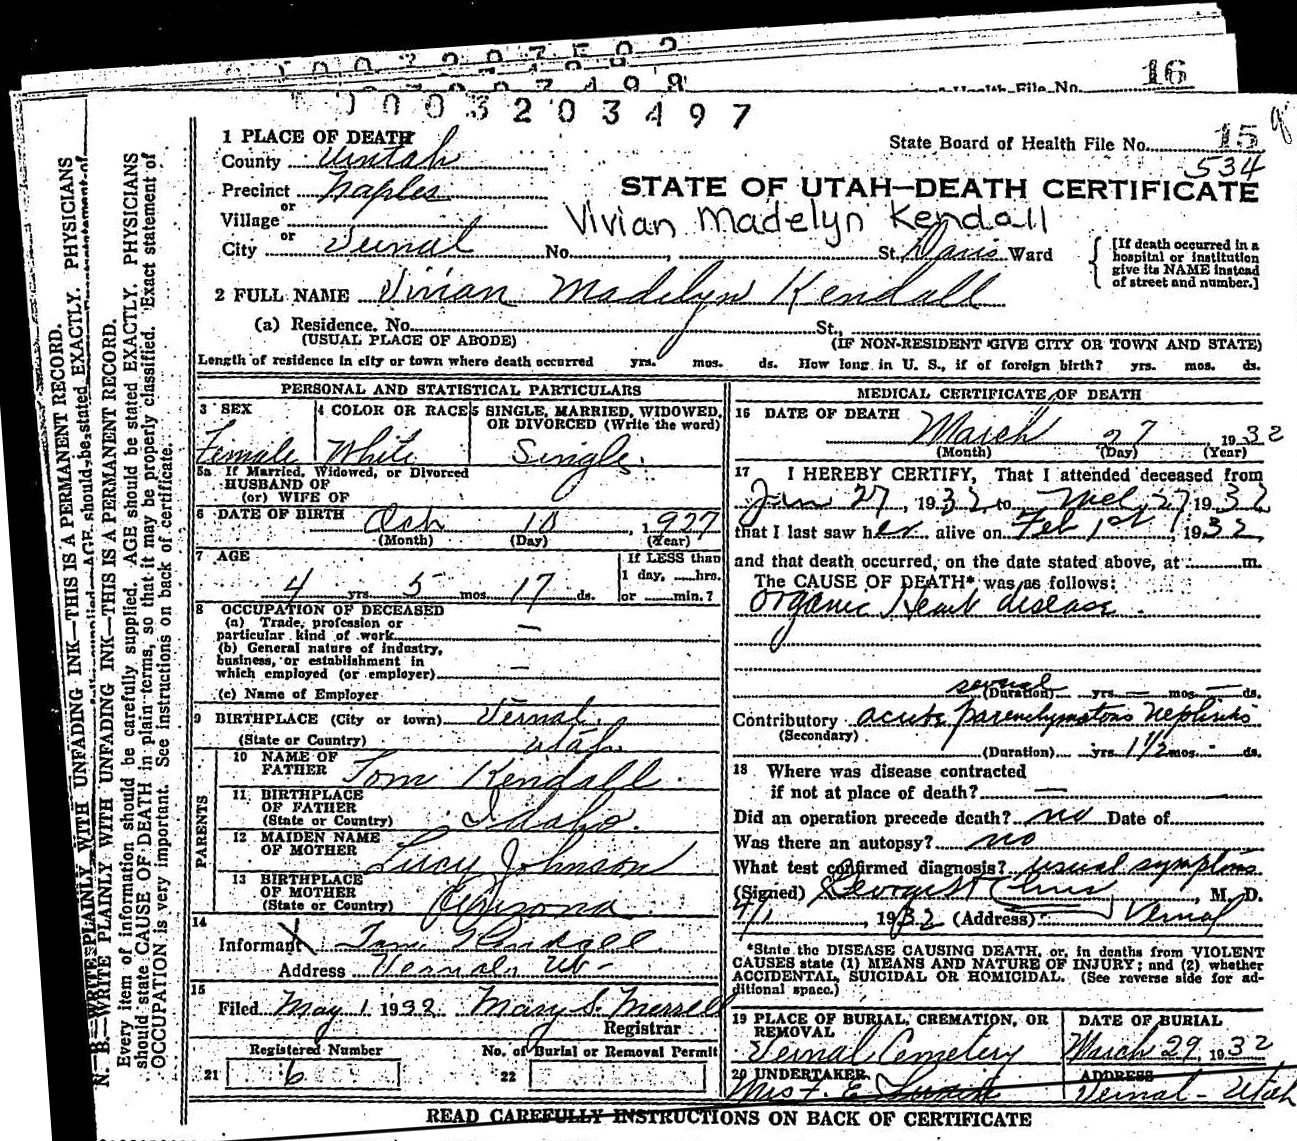 16
0003203497
State Board of Health File No. 15
534
1 PLACE OF DEATH
County Uintah
Precinct Naples
or
Village
or
City Vernal No. , St. Davis Ward
STATE OF UTAH—DEATH CERTIFICATE
Vivian Madelyn Kendall
[If death occurred in a
hospital or institution
give its NAME instead
of street and number.]
2 FULL NAME Vivian Madelyn Kendall
(a) Residence. No. St.,
(USUAL PLACE OF ABODE) (IF NON-RESIDENT GIVE CITY OR TOWN AND STATE)
Length of residence in city or town where death occurred yrs. mos. ds. How long in U. S., if of foreign birth? yrs. mos. ds.
PERSONAL AND STATISTICAL PARTICULARS
3 SEX 4 COLOR OR RACE 5 SINGLE, MARRIED, WIDOWED,
OR DIVORCED (Write the word)
Female White Single.
5a If Married, Widowed, or Divorced
HUSBAND OF
(or) WIFE OF
6 DATE OF BIRTH Oct 10, 1927
(Month) (Day) (Year)
7 AGE If LESS than
1 day, hrs.
4 yrs. 5 mos. 17 ds. or min.?
8 OCCUPATION OF DECEASED
(a) Trade, profession or
particular kind of work —
(b) General nature of industry,
business, or establishment in
which employed (or employer) —
(c) Name of Employer
9 BIRTHPLACE (City or town) Vernal
(State or Country) Utah
PARENTS
10 NAME OF
FATHER Tom Kendall
11 BIRTHPLACE
OF FATHER
(State or Country) Idaho.
12 MAIDEN NAME
OF MOTHER Lucy Johnson
13 BIRTHPLACE
OF MOTHER
(State or Country) Arizona
14
Informant Tom Kendall
Address Vernal, Ut-
15
Filed May 1 1932 Mary S. Merrell
Registrar
Registered Number No. of Burial or Removal Permit
21 6 22
MEDICAL CERTIFICATE OF DEATH
16 DATE OF DEATH
March 27, 1932
(Month) (Day) (Year)
17 I HEREBY CERTIFY, That I attended deceased from
Jan 27, 1932, to Mch, 27 1932
that I last saw her alive on Feb 1st, 1932,
and that death occurred, on the date stated above, at m.
The CAUSE OF DEATH* was as follows:
Organic Heart disease.
several
(Duration) yrs. — mos. — ds.
Contributory acute parenchymatous nephritis
(Secondary)
(Duration) yrs. 1½ mos. - ds.
18 Where was disease contracted
if not at place of death? —
Did an operation precede death? no Date of
Was there an autopsy? no
What test confirmed diagnosis? usual symptoms
(Signed) , M. D.
4/1, 1932 (Address) Vernal
*State the DISEASE CAUSING DEATH, or, in deaths from VIOLENT
CAUSES state (1) MEANS AND NATURE OF INJURY; and (2) whether
ACCIDENTAL, SUICIDAL OR HOMICIDAL. (See reverse side for ad-
ditional space.)
19 PLACE OF BURIAL, CREMATION, OR
REMOVAL
Vernal Cemetery
DATE OF BURIAL
March 29, 1932
20 UNDERTAKER
Mrs F. E.
ADDRESS
Vernal - Utah
READ CAREFULLY INSTRUCTIONS ON BACK OF CERTIFICATE
N. B.—WRITE PLAINLY WITH UNFADING INK—THIS IS A PERMANENT RECORD.
Every item of information should be carefully supplied. AGE should be stated EXACTLY. PHYSICIANS
should state CAUSE OF DEATH in plain terms, so that it may be properly classified. Exact statement of
OCCUPATION is very important. See instructions on back of certificate.